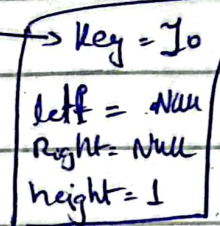 Key = 10
left = Null
Right = Null
height = 1